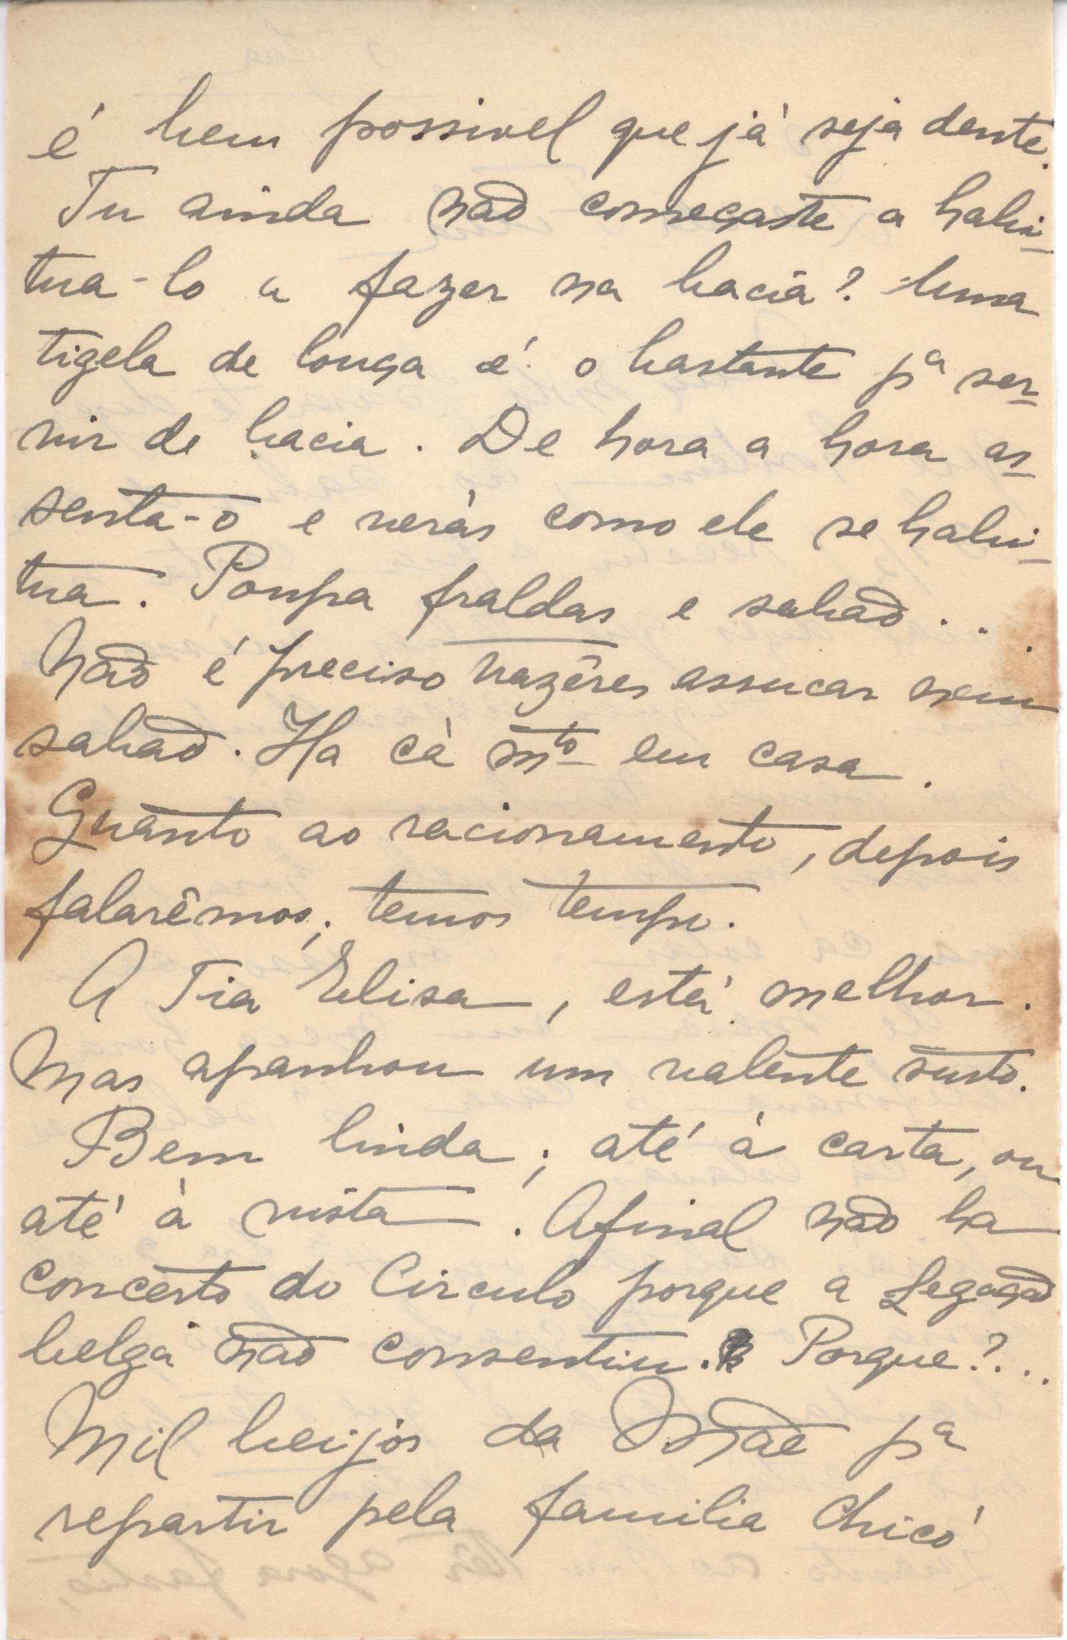 é bem possivel que já seja dente.
Tu ainda não começaste a habi-
tua-lo a fazer na bacia? Uma
tigela de louça é o bastante pª ser-
vir de bacia. De hora a hora as-
senta-o e verás como ele se habi-
tua. Poupa fraldas e sabão...
Não é preciso trazêres assucar nem
sabão. Ha cá mto em casa.
Quanto ao racionamento, depois
falarêmos; temos tempo.
A Tia Elisa, está melhor.
Mas apanhou um valente susto.
Bem linda; até à carta, ou
até à vista. Afinal não ha
concerto do Circulo porque a Legação
belga não consentiu. Porque?...
Mil beijos da Mãe pª
repartir pela familia Chicó